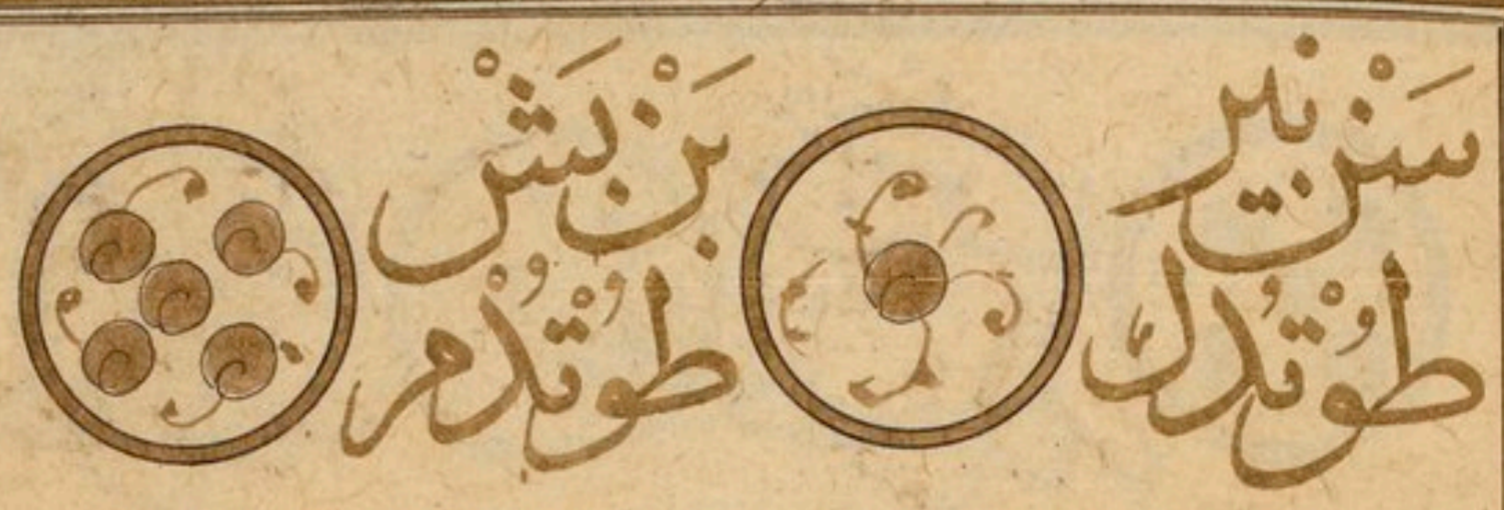 سَنْ بير
طُوْتدُك
بَنْ بَشْ
طُوْتدُمْ